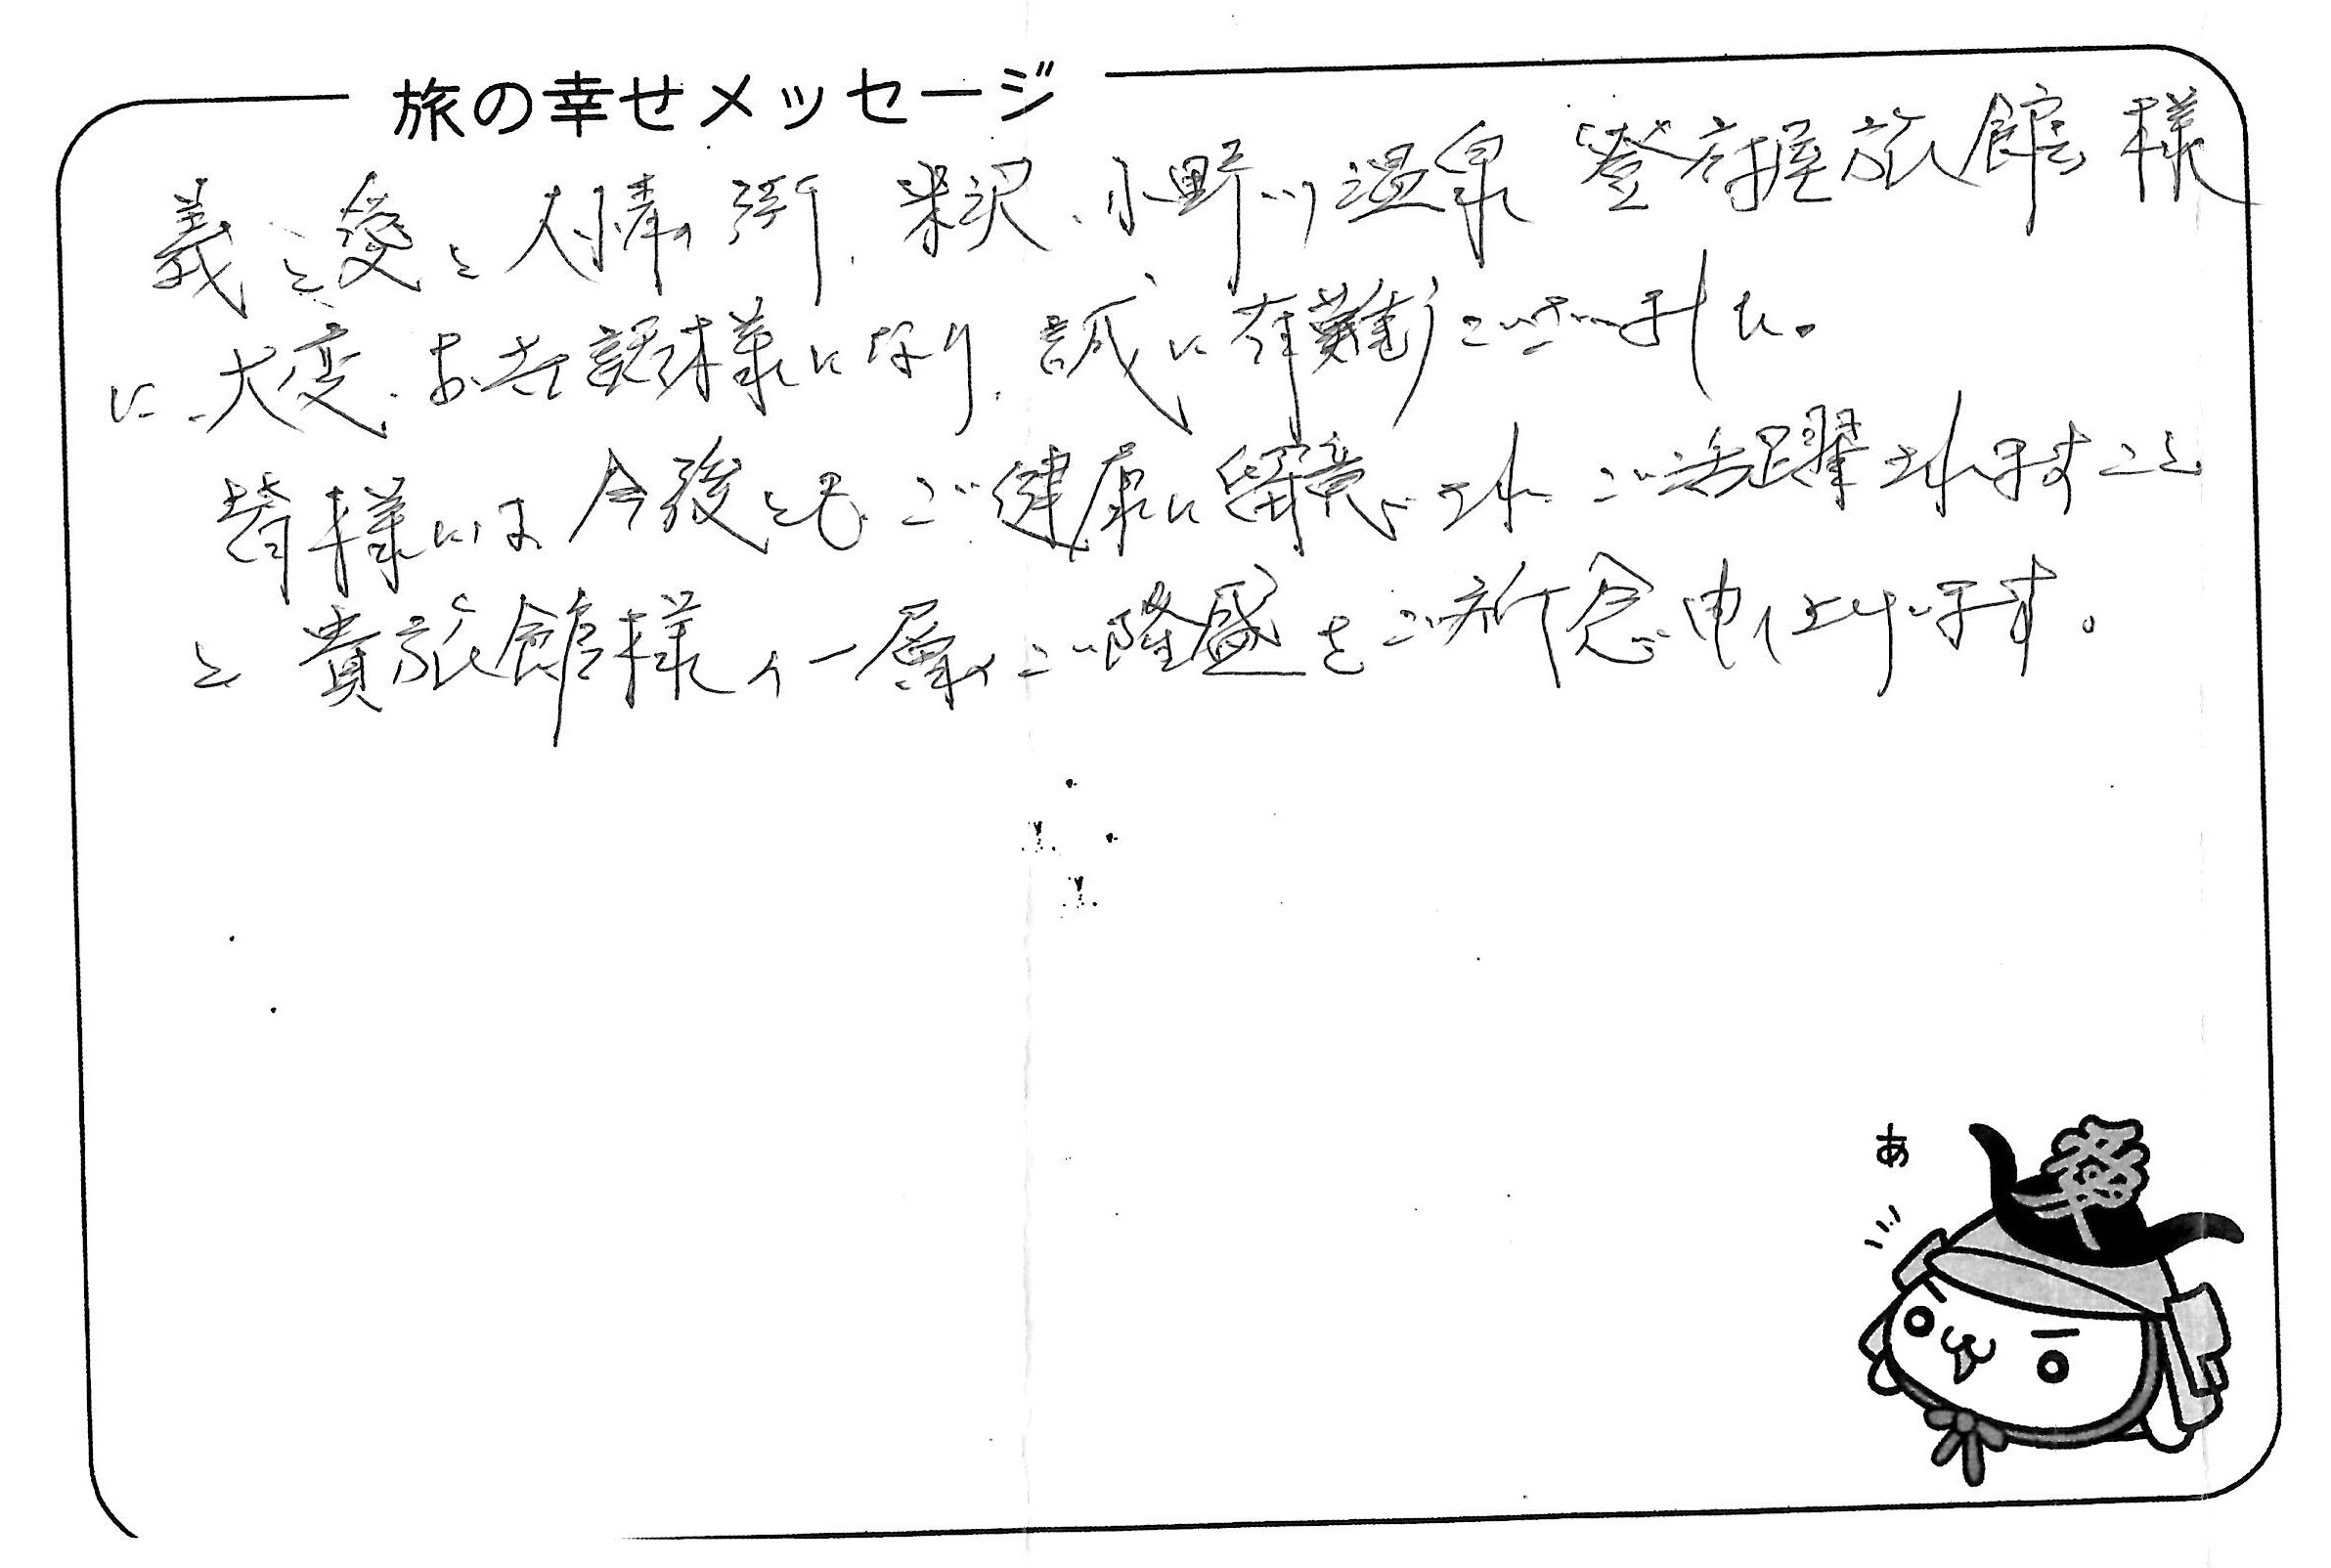 旅の幸せメッセージ
義と愛と人情の街、米沢、小野川温泉 登府屋旅館様
に、大変、お世話様になり、誠に有難うございました。
皆様には、今後とも、ご健康に留意され、ご活躍されますこと
と貴旅館様の一層のご隆盛をご祈念申し上げます。
あ
幸